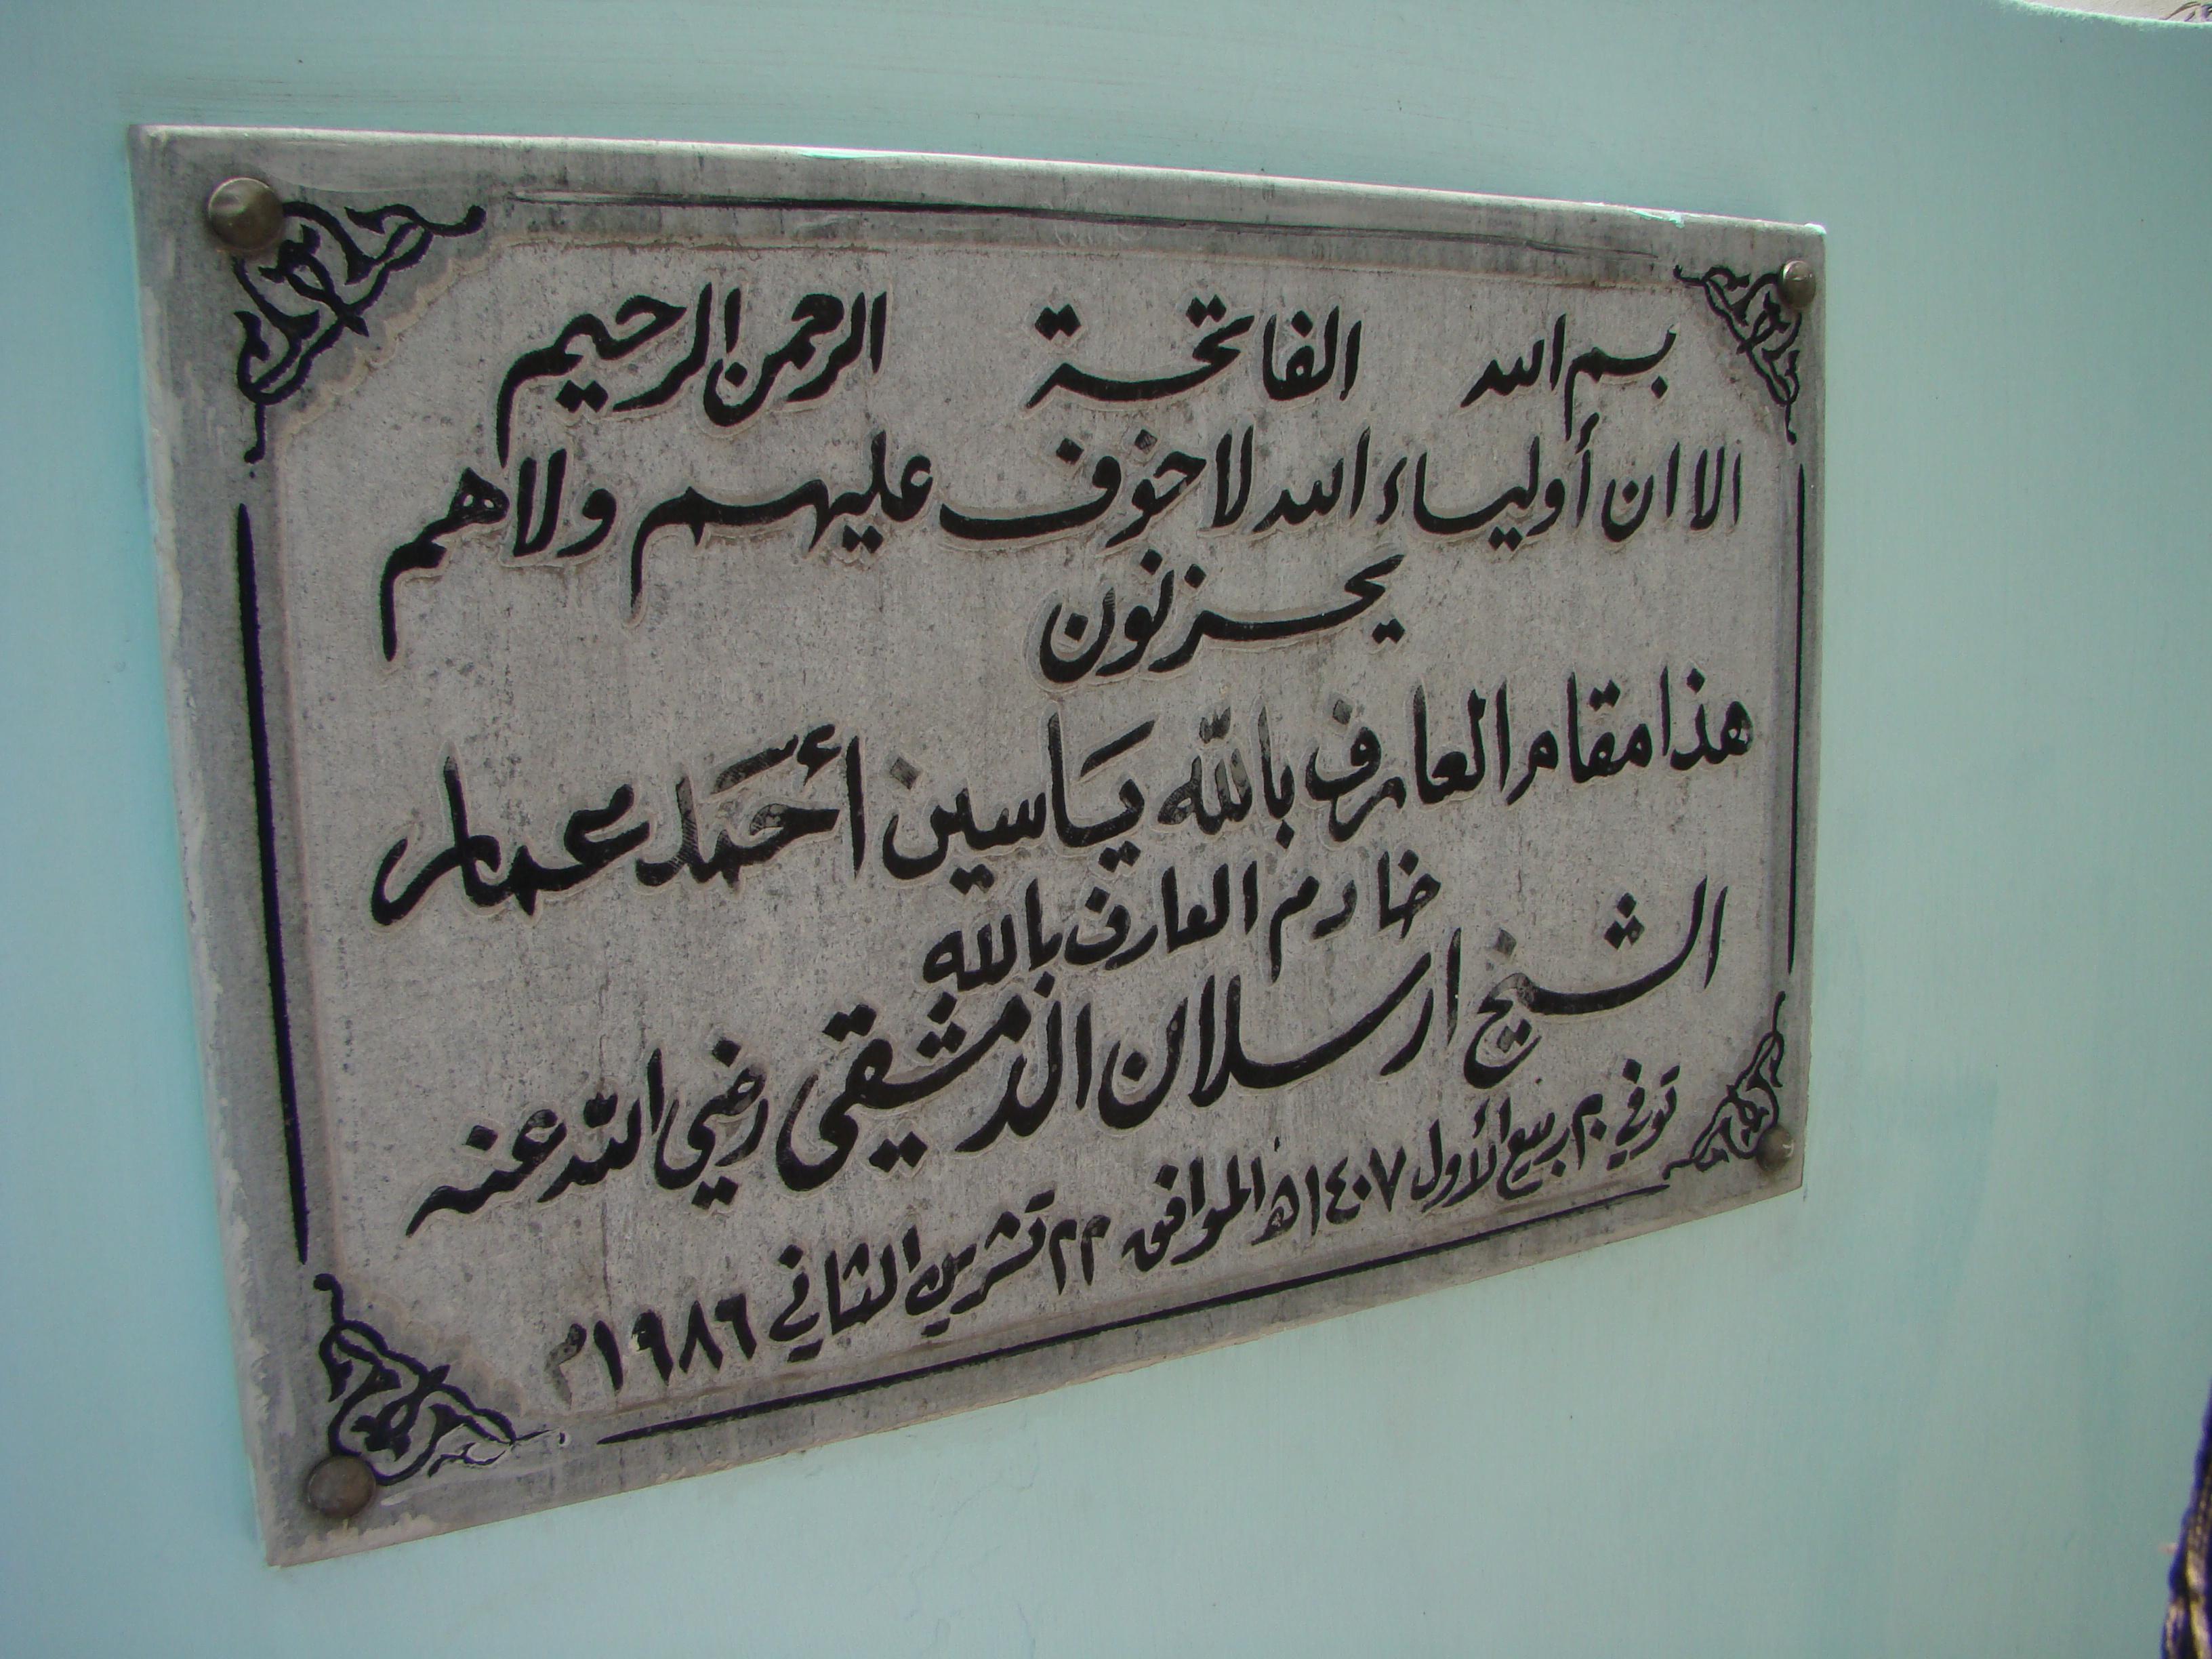 بسم الله الفاتحة الرحمن الرحيم
الا ان أولياء الله لا خوف عليهم ولا هم
يحزنون
هذا مقام العارف بالله ياسين أحمد عمار
خادم العارف بالله
الشيخ ارسلان الدمشقي رضي الله عنه
توفي ٢٠ ربيع الأول ١٤٠٧ هـ الموافق ٢٢ تشرين الثاني ١٩٨٦م